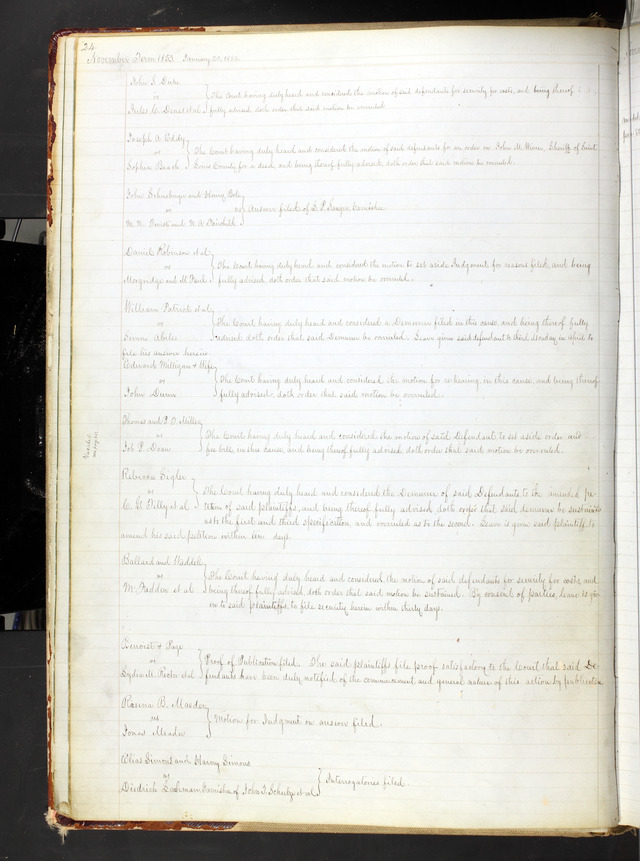 24
November Term 1853 January 20, 1854
John S. Duke
vs
Jules C. et al
The Court having duly heard and considered the motion of said defendants for security for costs, and being thereof
fully advised, doth order that said motion be overruled
Joseph A. Eddy
vs
Sophia Beach
The Court having duly heard and considered the motion of said defendants for an order on John M. Wimer, Sheriff of Saint
Louis County for a deed, and being thereof fully advised, doth order that said motion be overruled.
John and Henry
vs
and
Answer filed of S. P. Garnishee
Daniel Robinson et al
vs
and St Paul
The Court having duly heard and considered the motion to set aside Judgment for reasons filed, and being
fully advised, doth order that said motion be overruled.
William Patrick et al
vs
Abeles
The Court having duly heard and considered a Demurrer filed in this cause, and being thereof fully
advised doth order that said Demurrer be overruled. Leave given said defendant to third Monday in April to
file his answer herein
Edward Milligan & Wife
vs
John Dunn
The Court having duly heard and considered the motion for rehearing in this cause, and being thereof
fully advised, doth order that said motion be overruled.
Thomas and P. D. Miller
vs
Job P. Doan
The Court having duly heard and considered the motion of said Defendant to set aside order and
fee bill, in this cause, and being thereof fully advised, doth order that said motion be overruled.
Rebecca Sigler
vs
C. G. Filly et al
The Court having duly heard and considered the Demurrer of said Defendants to the amended pe-
tition of said plaintiffs, and being thereof fully advised, doth order that said demurrer be sustained
as to the first and third specification, and overruled as to the second. Leave is given said plaintiff to
amend his said petition within ten days.
Ballard and Waddell
vs
McFadden et al
The Court having duly heard and considered the motion of said defendants for security for costs, and
being thereof fully advised, doth order that said motion be sustained. By consent of parties, leave is giv-
en to said plaintiffs, to file security herein within thirty days.
Benoist & Page
vs
Lydia M. et al
Proof of Publication filed. The said plaintiffs file proof satisfactory to the Court that said De-
fendants have been duly notified of the commencement and general nature of this action by publication
B. Meador
vs
Jonas Meador
Motion for Judgment on answer filed.
Elias Simons and Simons
vs
Diedrich Garnishee of John T. Schultze et al.
Interrogatories filed.